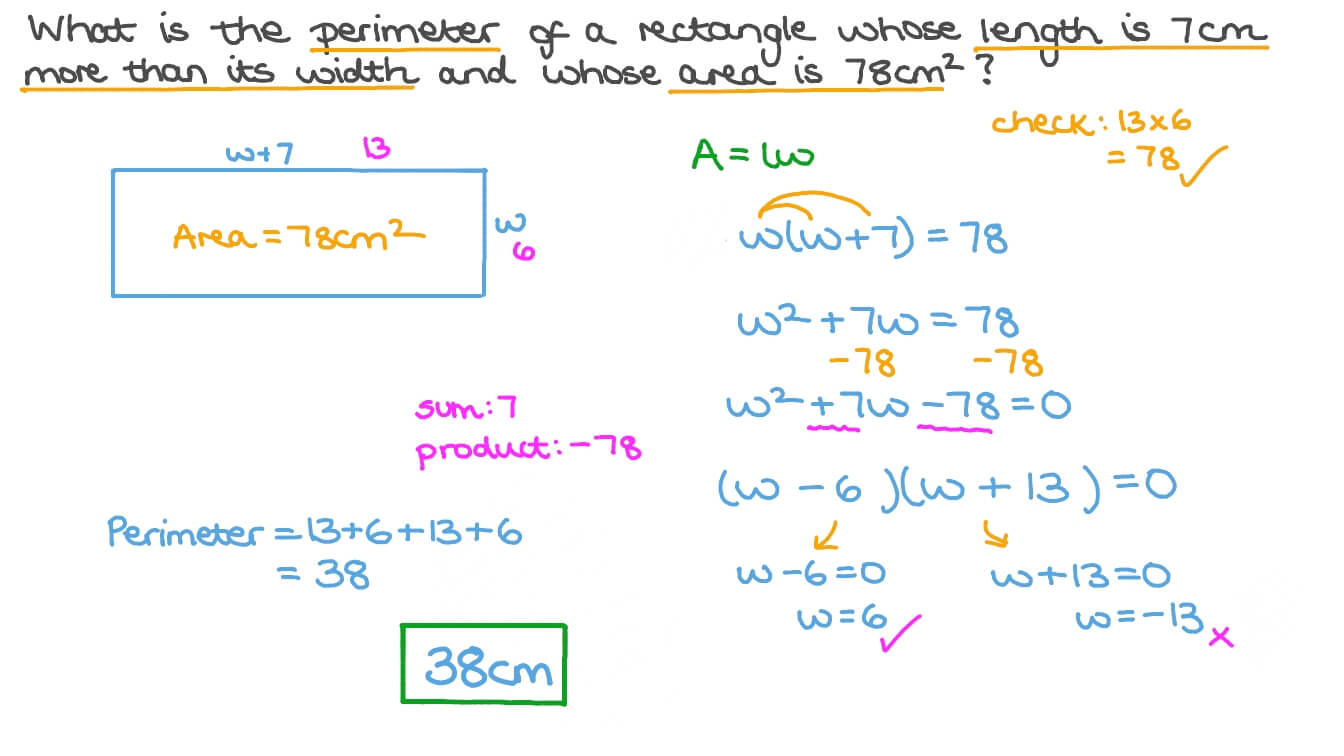 What is the perimeter of a rectangle whose length is 7cm
more than its width and whose area is 78cm²?
w+7 13
Area = 78cm²
w
6
A = lw
check: 13×6
= 78 ✓
w(w+7) = 78
w² + 7w = 78
-78 -78
w² + 7w - 78 = 0
sum: 7
product: -78
(w - 6)(w + 13) = 0
w - 6 = 0
w = 6 ✓
w + 13 = 0
w = -13 ×
Perimeter = 13+6+13+6
= 38
38cm